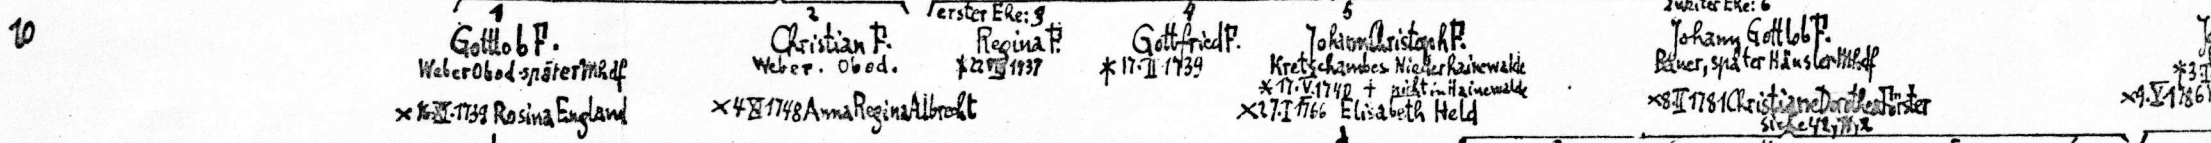 10
1
Gottlob F.
Weber Obod. später Mhdf
× XI.1739 Rosina England
2
Christian F.
Weber. Obod.
× 4 XI 1748 Anna Regina Albrecht
erster Ehe: 3
Regina F.
* 22 1737
4
Gottfried F.
* 17. II 1739
5
Johann Christoph F.
Kretschambes. Niederhainewalde
* 17. V. 1740 + nicht in Hainewalde
× 27. I 1766 Elisabeth Held
zweiter Ehe: 6
Johann Gottlob F.
Bauer, später Häusler Mhdf
× 8 II 1781 Christiane Dorothea Förster
siehe
* 3.
× 9. V 1786